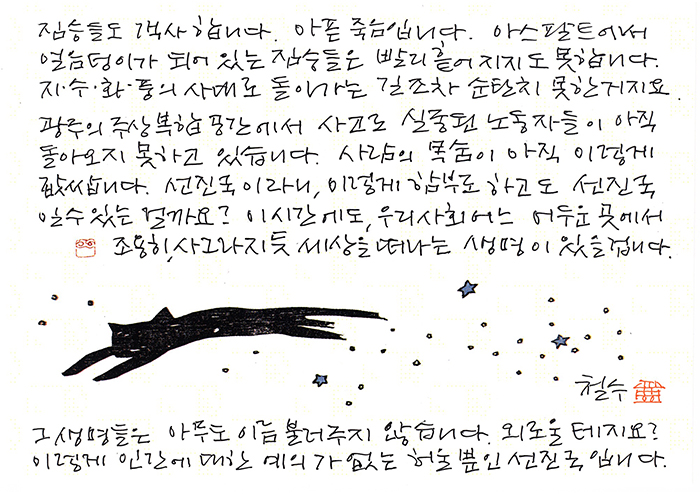 짐승들도 객사 합니다. 아픈 죽음입니다. 아스팔트에서
얼음덩이가 되어 있는 짐승들은 빨리 흩어지지도 못합니다.
지·수·화·풍의 사대로 돌아가는 길조차 순탄치 못한거지요.
광주의 주상복합 공간에서 사고로 실종된 노동자들이 아직
돌아오지 못하고 있습니다. 사람의 목숨이 아직 이렇게
값쌉니다. 선진국이라니, 이렇게 함부로 하고도 선진국
일 수 있는 걸까요? 이 시간에도, 우리사회 어느 어두운 곳에서
조용히, 사그라지듯 세상을 떠나는 생명이 있을겁니다.
철수
그 생명들은 아무도 이름 불러주지 않습니다. 외로울 테지요?
이렇게 인간에 대한 예의가 없는 허울뿐인 선진국입니다.